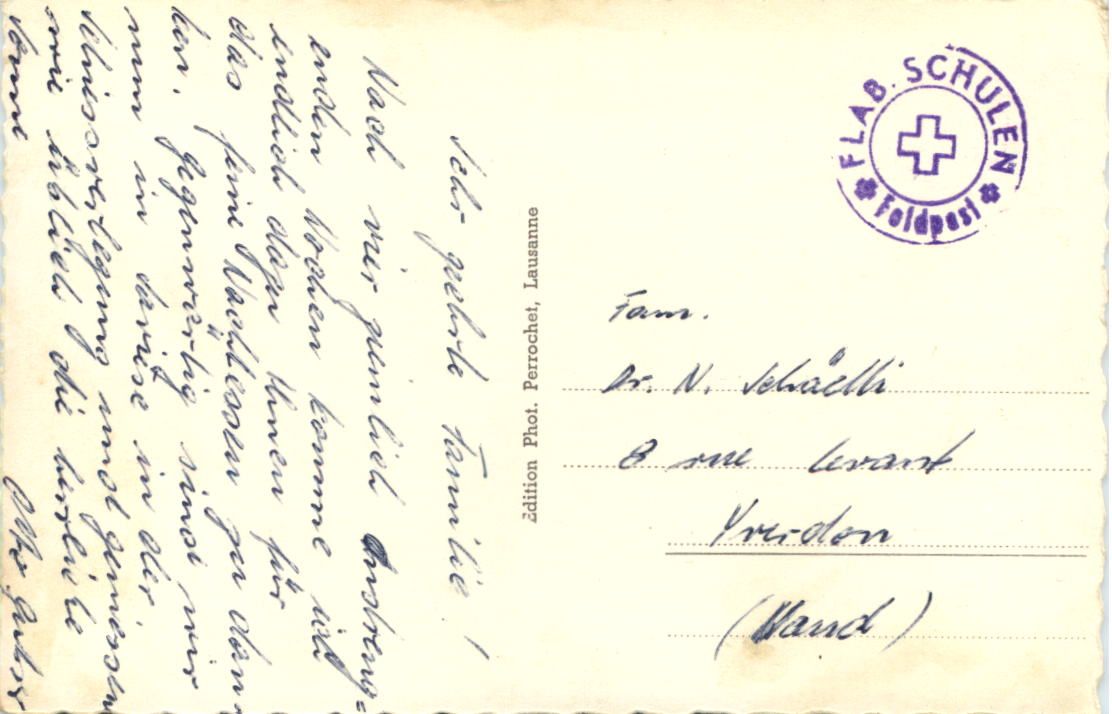 Sehr geehrte Familie!
Nach vier ziemlich Anstreng=
enden Wochen komme ich
endlich dazu Ihnen für
das feine Nachtessen zu dan-
ken. Gegenwärtig sind wir
nun in Savièse in der
Schiessverlegung und geniessen
wie üblich die herrliche
Sonne
Édition Phot. Perrochet, Lausanne
FLAB. SCHULEN
Feldpost
Fam.
Dr. N. Schäelli
8 rue Levant
Yverdon
(Vaud)